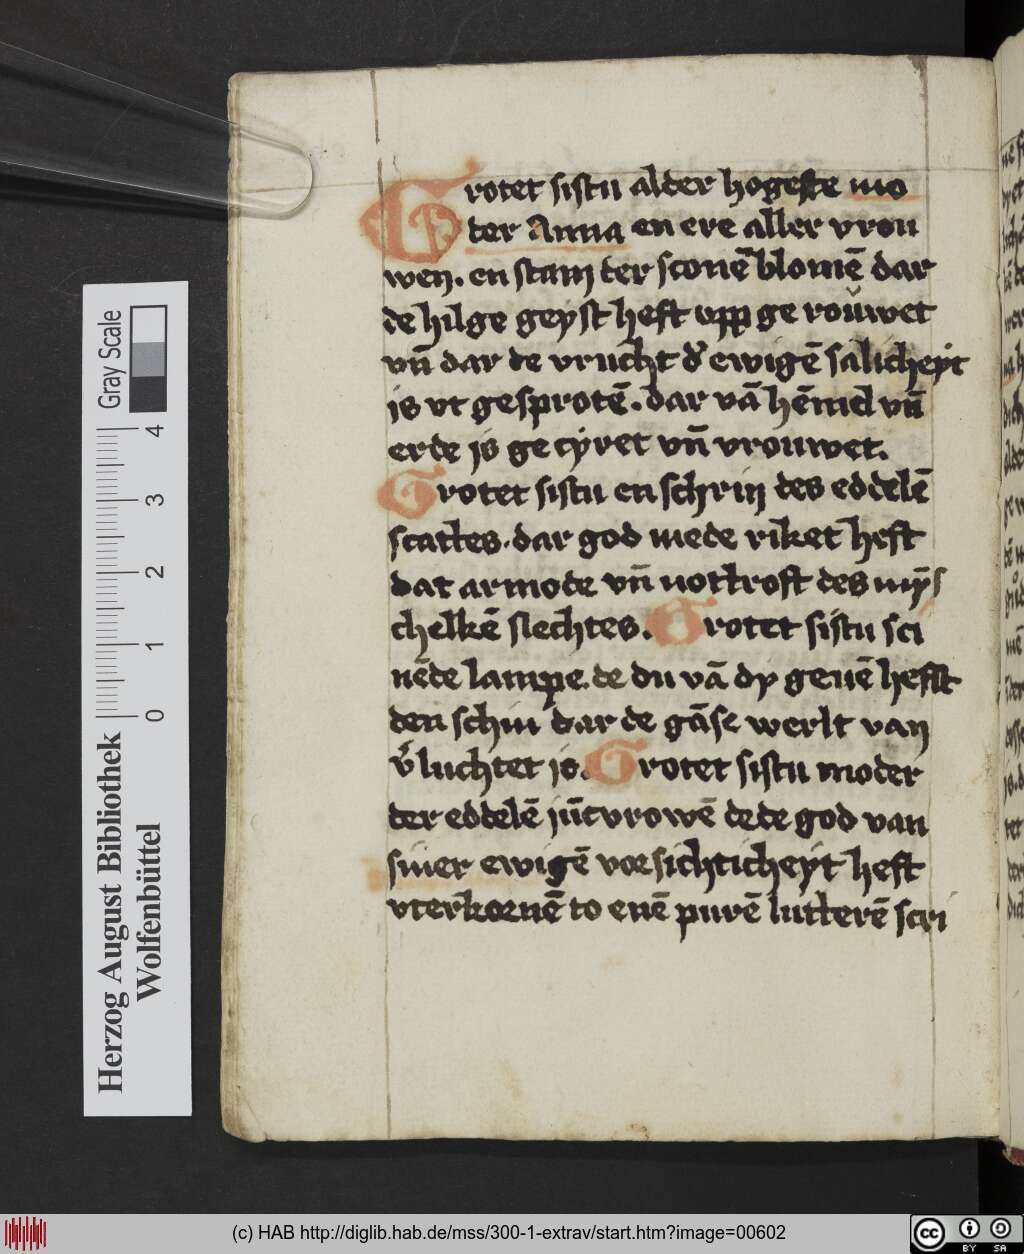 Grotet sistu alder hogeste mo
der Anna en ere aller vrou
wen. en stam der sconē blomē dar
de hilge geyst heft upp ge rouwet
vn̄ dar de vrucht d' ewigē salicheyt
is vt gesprotē. dar vā hēmel vn̄
erde is ge cyret vn̄ vrouwet.
Grotet sistu en schrin des eddelē
scattes. dar god mede riket heft
dat armode vn̄ nottroft des mȳs
chelkē slechtes. Grotet sistu sci
nēde lampe. de du vā dy geuē hefft
den schin dar de gāse werlt van
v' luchtet is. Grotet sistu moder
der eddelē jūcvrowē dede god van
siner ewigē vorsichticheyt heft
vterkornē to enē purē lutterē scri
Gray Scale
0 1 2 3 4
Herzog August Bibliothek
Wolfenbüttel
(c) HAB http://diglib.hab.de/mss/300-1-extrav/start.htm?image=00602
cc BY SA